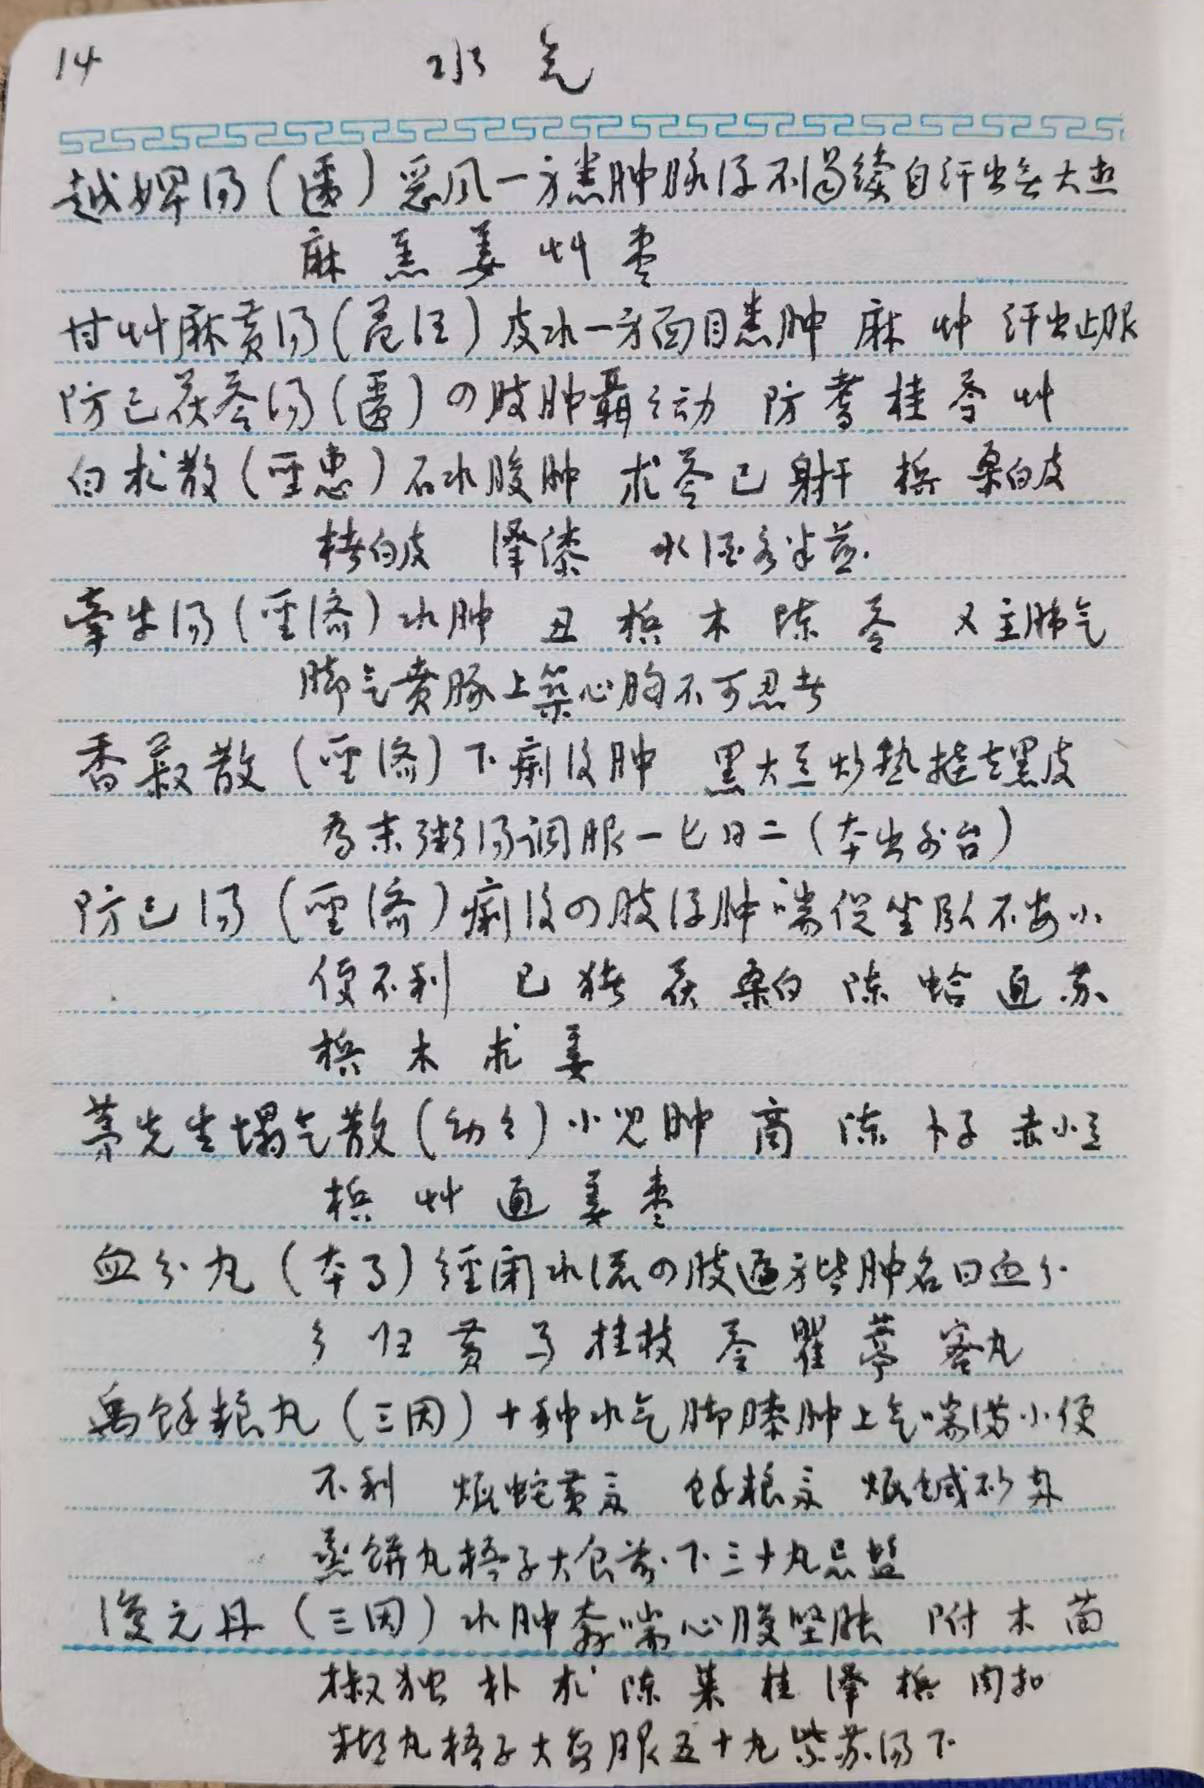 14 水气
越婢汤（匮）恶风一身悉肿脉浮不渴续自汗出无大热
麻 羔 姜 艸 枣
甘艸麻黄汤（范汪）皮水一身面目悉肿 麻 艸 汗出止服
防己茯苓汤（匮）の肢肿聂之动 防 耆 桂 苓 艸
白术散（圣惠）石水腹肿 术 苓 己 射干 槟 桑白皮
楮白皮 泽漆 水酒各半煎
牵牛汤（圣济）水肿 丑 槟 木 陈 苓 又主肺气
脚气贲豚上築心胸不可忍者
香菽散（圣济）下痢后肿 黑大豆炒热 去黑皮
为末粥汤调服一匕日二（本出外台）
防己汤（圣济）痢后の肢浮肿喘促坐卧不安小
便不利 己 猪 茯 桑白 陈 蛤 通 苏
槟 木 术 姜
茅先生塌气散（幼幼）小儿肿 商 陈 卜子 赤小豆
槟 艸 通 姜 枣
血分丸（本事）经闭水流の肢遍身皆肿名曰血分
归 黄 桂枝 苓 瞿 葶 蜜丸
禹餘粮丸（三因）十种水气脚膝肿上气喘满小便
不利 煅蛇黄 餘粮 煅鍼砂
蒸饼丸梧子大食前下三十丸忌盐
復元丹（三因）水肿奔喘心腹坚胀 附 木 茴
椒 独 朴 术 陈 茱 桂 泽 槟 肉扣
糊丸梧子大每服五十丸紫苏汤下